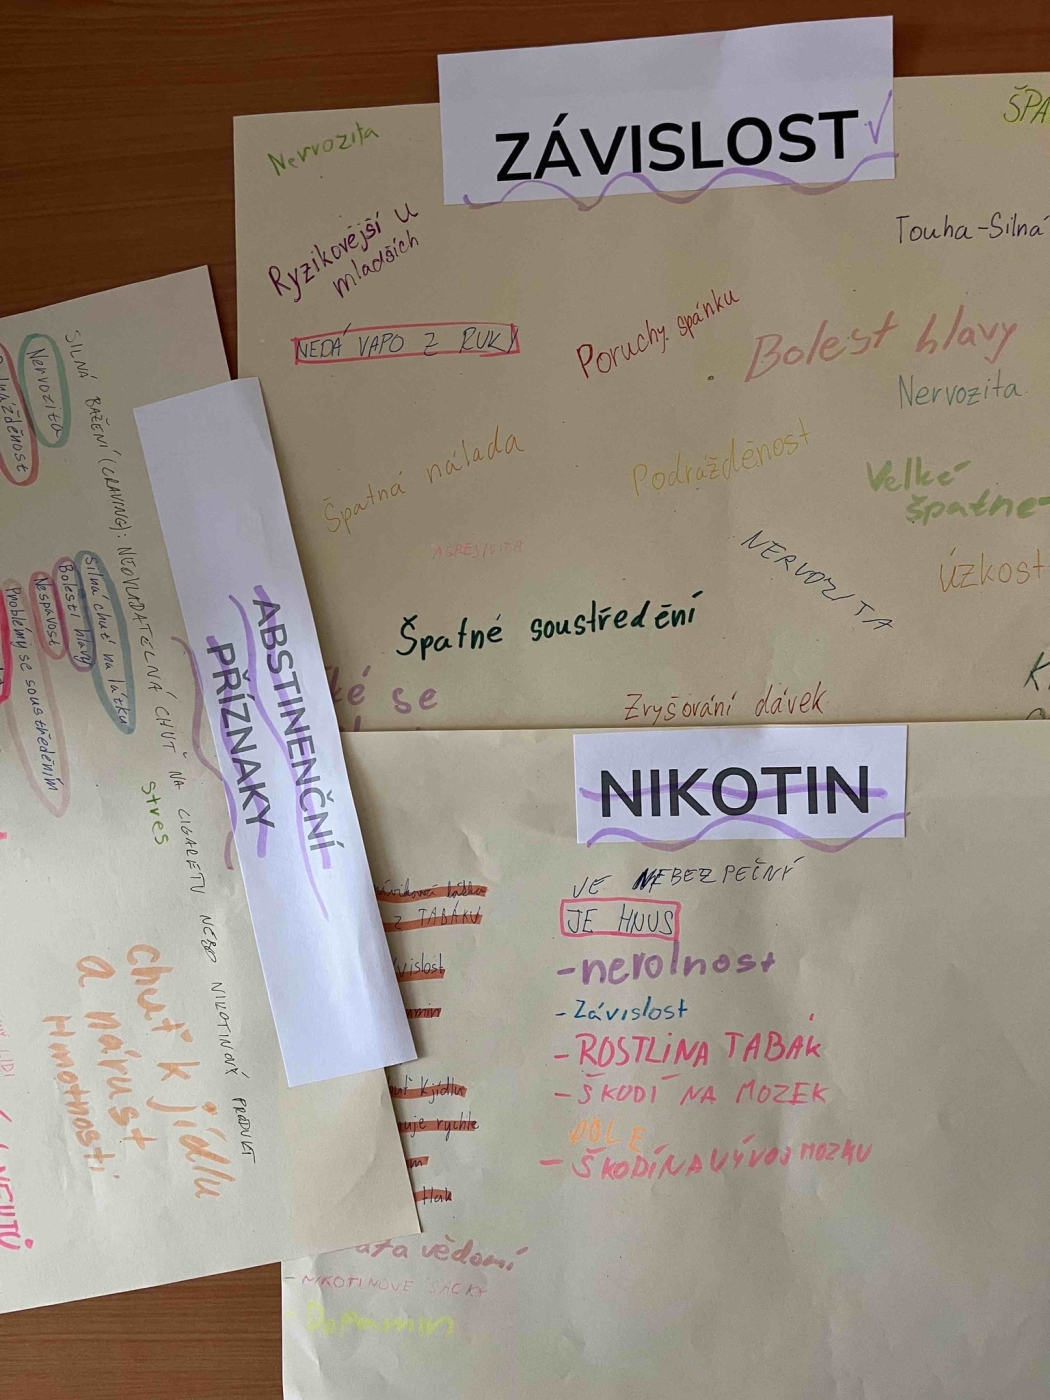 ZÁVISLOST
Nervozita
ŠPA
Ryzikovější u
mladších
Touha-Silná
NEDÁ VAPO Z RUKY
Poruchy spánku
Bolest hlavy
Nervozita
Špatná nálada
Podrážděnost
Velké
špatne-
AGRESIVITA
NERVOZITA
ÚZKOST
Špatné soustředění
ké se
Zvyšování dávek
K
ABSTINENČNÍ
PŘÍZNAKY
SILNÁ BAŽENÍ (CRAVING): NEOVLADATELNÁ CHUŤ NA CIGARETU NEBO NIKOTINOVÝ PRODUKT
Nervozita
Silná chuť na látku
Bolesti hlavy
Nespavost
Problémy se soustředěním
stres
chuť k jídlu
a nárust
Hmotnosti
NIKOTIN
JE NEBEZPEČNÝ
JE HNUS
-nevolnost
-Závislost
-ROSTLINA TABÁK
-ŠKODÍ NA MOZEK
DOLE
-ŠKODÍ NA VÝVOJ MOZKU
návyková látka
Z TABÁKU
vislost
min
uť k jídlu
uje rychle
m
tlak
ata vědomí
-NIKOTINOVÉ SÁČKY
-Dopamin